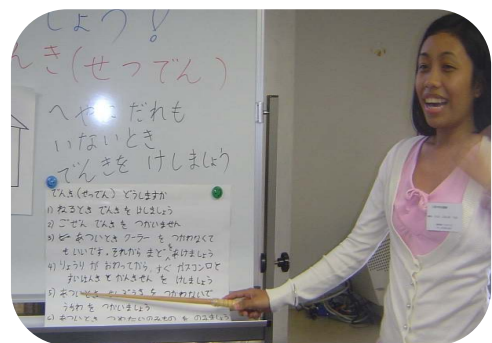 しょう!
んき(せつでん)
へやに だれも
いないとき
でんきを けしましょう
でんき(せつでん) どうしますか
1) ねるとき でんきを けしましょう
2) ごぜん でんきを つかいません
3) あついとき クーラー を つかわなくて
もいいです。それから まどをあけましょう
4) りょうり が おわってから、すぐ ガスコンロと
すいはんきと かんきせんを けしましょう
5) あついとき を つかわないで
うちわ を つかいましょう
6) あついとき つめたいのみものを のみましょう